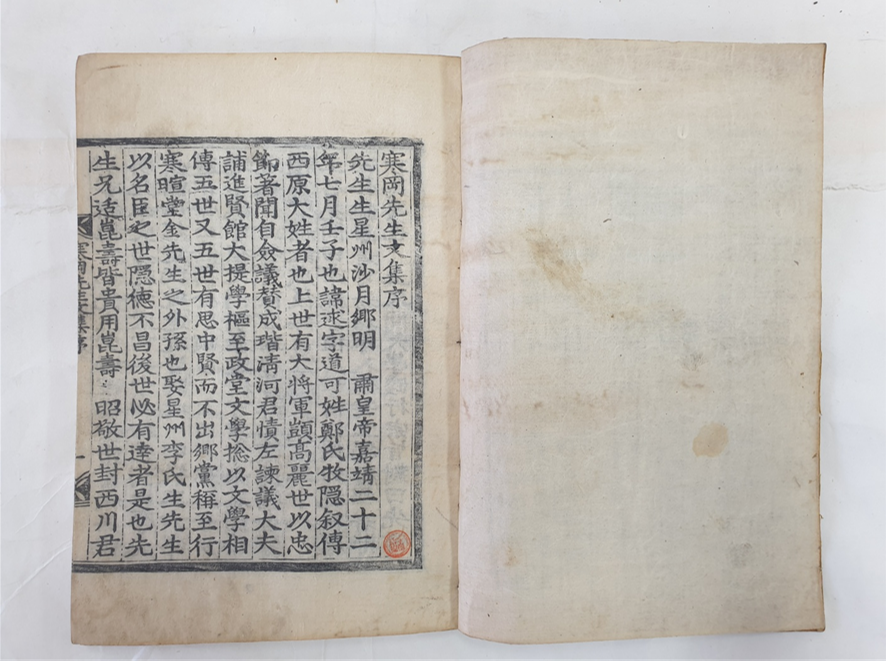 寒岡先生文集序
先生生星州沙月鄉明 肅皇帝嘉靖二十二
年七月壬子也諱逑字道可姓鄭氏牧隱叙傳
西原大姓者也上世有大將軍顗高麗世以忠
節著聞自僉議贊成瑎淸河君㥽左諫議大夫
誧進賢館大提學樞至政堂文學捴以文學相
傳五世又五世有思中賢而不出鄉黨稱至行
寒暄堂金先生之外孫也娶星州李氏生先生
以名臣之世隱德不昌後世必有達者是也先
生兄适崑壽皆貴用崑壽 昭敬世封西川君
寒岡先生文集序 一